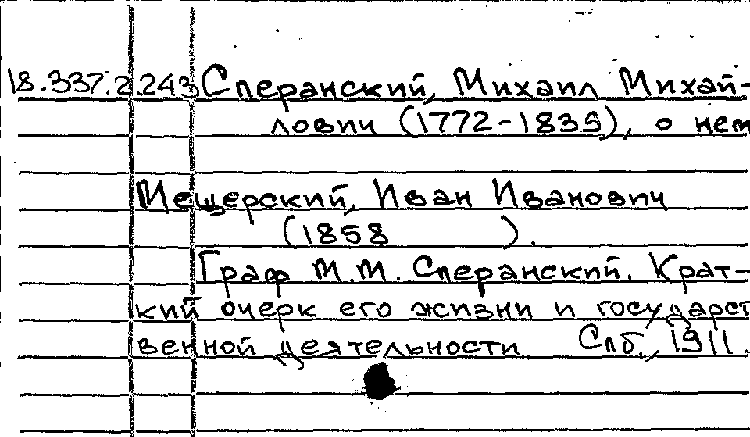 18.337.2.243 Сперанский, Михаил Михай-
лович (1772-1835), о нем
Мещерский, Иван Иванович
(1858 ).
Граф М.М. Сперанский. Крат-
кий очерк его жизни и государст
венной деятельности Спб., 1911.